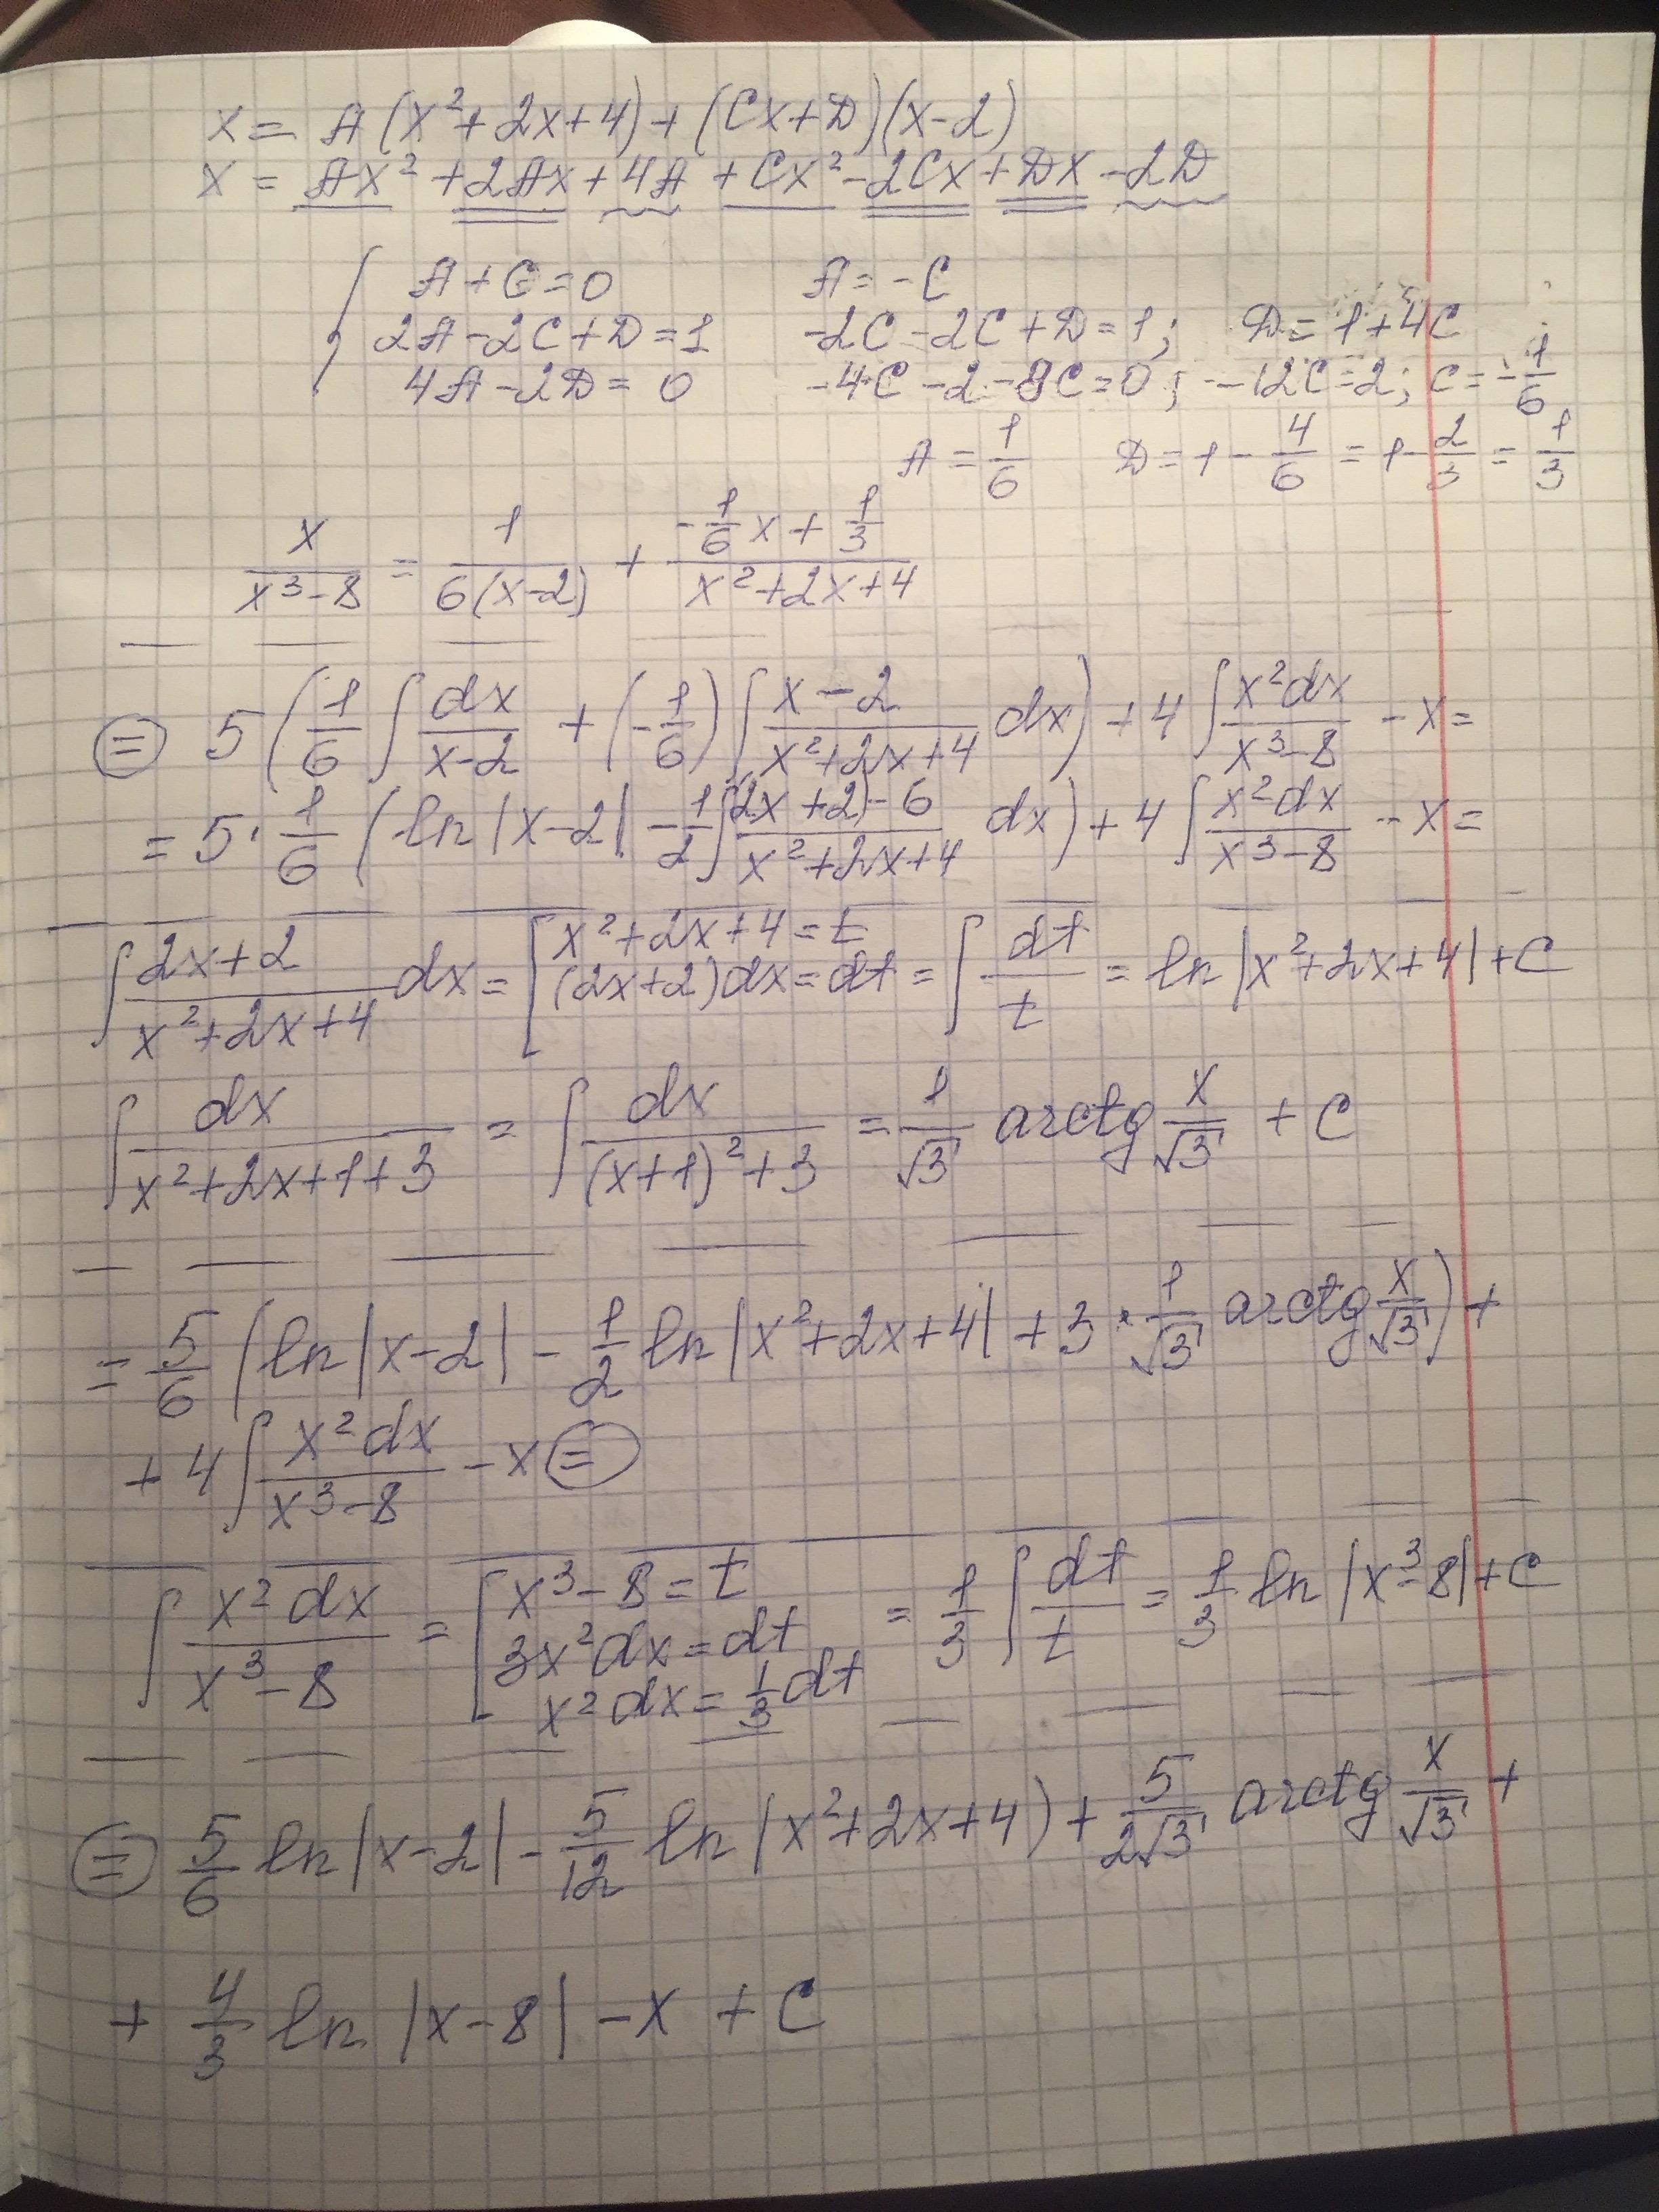 x = A(x²+2x+4)+(Cx+D)(x-2)
x = Ax²+2Ax+4A+Cx²-2Cx+Dx-2D
A+C=0 A=-C
2A-2C+D=1 -2C-2C+D=1; D=1+4C
4A-2D=0 -4C-2-8C=0; -12C=2; C=-1/6
A=1/6 D=1-4/6=1-2/3=1/3
x/(x³-8) = 1/(6(x-2)) + (-1/6 x + 1/3)/(x²+2x+4)
= 5(1/6 ∫ dx/(x-2) + (-1/6) ∫ (x-2)/(x²+2x+4) dx) + 4 ∫ x²dx/(x³-8) - x =
= 5·1/6 (ln|x-2| - 1/2 ∫ ((2x+2)-6)/(x²+2x+4) dx) + 4 ∫ x²dx/(x³-8) - x =
∫ (2x+2)/(x²+2x+4) dx = [x²+2x+4=t (2x+2)dx=dt = ∫ dt/t = ln|x²+2x+4|+C
∫ dx/(x²+2x+1+3) = ∫ dx/((x+1)²+3) = 1/√3 arctg x/√3 + C
= 5/6 (ln|x-2| - 1/2 ln|x²+2x+4| + 3·1/√3 arctg x/√3) +
+ 4 ∫ x²dx/(x³-8) - x =
∫ x²dx/(x³-8) = [x³-8=t 3x²dx=dt x²dx=1/3 dt = 1/3 ∫ dt/t = 1/3 ln|x³-8|+C
= 5/6 ln|x-2| - 5/12 ln|x²+2x+4) + 5/(2√3) arctg x/√3 +
+ 4/3 ln|x-8| - x + C